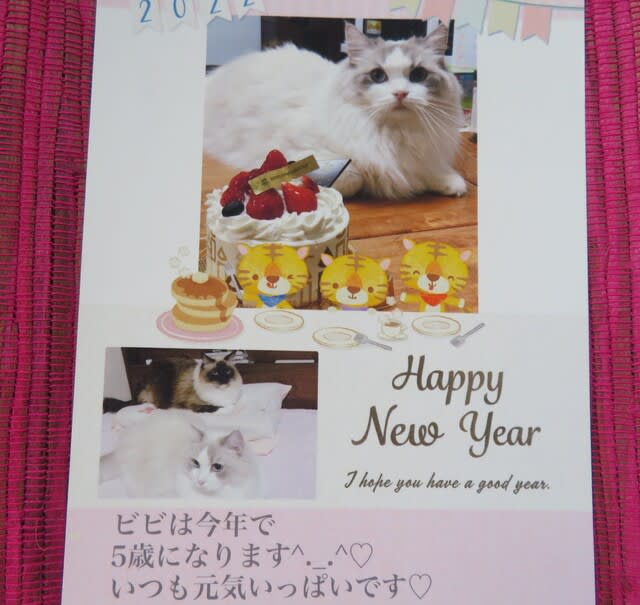 2022
Happy
New Year
I hope you have a good year.
ビビは今年で
5歳になります^._.^♡
いつも元気いっぱいです♡